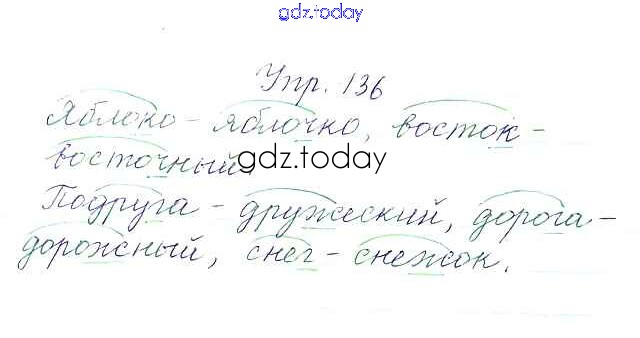 gdz.today
Упр. 136
Яблоко - яблочко, восток -
восточный.
gdz.today
Подруга - дружеский, дорога -
дорожный, снег - снежок.